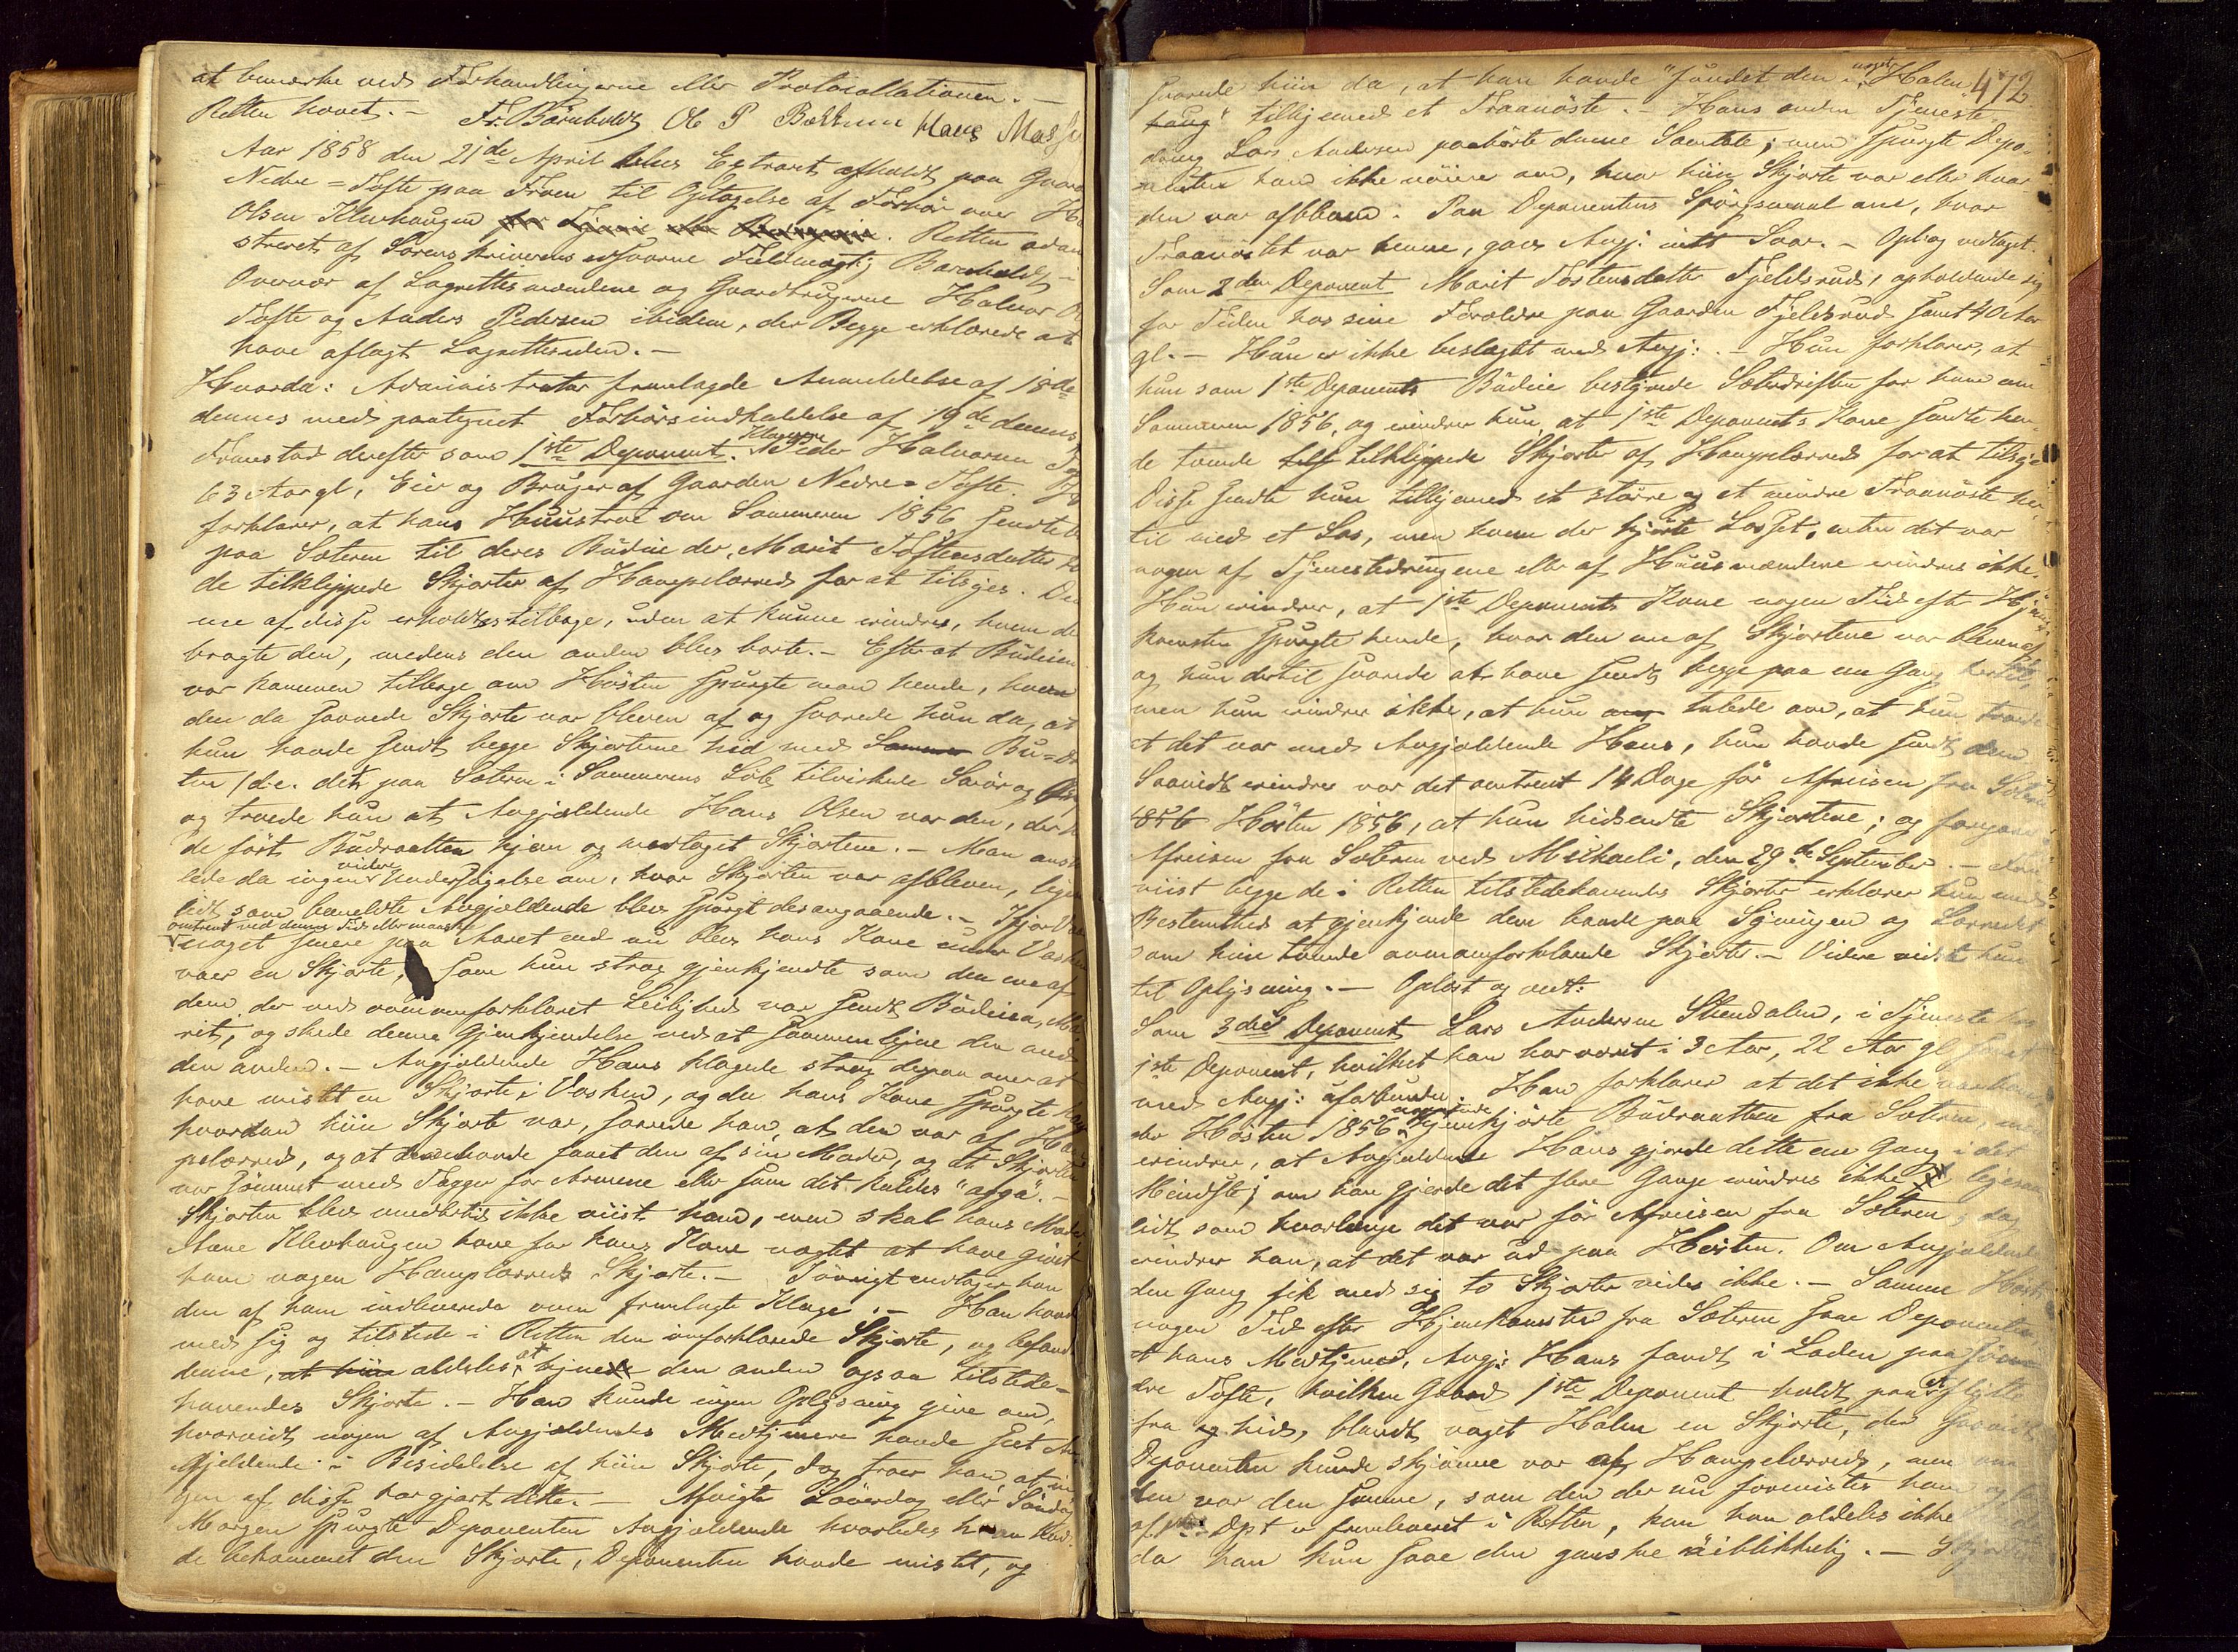 at bemærke ved Forhandlingerne eller Protocollationen. —
Retten hævet. — Fr. Bærnholdt Ole P Bækkum Hans
Aar 1858 den 21de April blev Extraret afholdt paa Gaard
Nedre-Tofte paa Froen til Optagelse af Forhør over
Olsen Klevhaugen for eller. Retten
streret af Sorenskriverens edsvorne Fuldmægtig Bærnholdt i
Overvær af Lagrettesmændene og Gaardbrugerne Halvor
Tofte og Anders Pedersen ibidem, der Begge erklærede at
have aflagt Lagrettesseden. —
Hvorda: Administrator fremlagde Anmeldelse af 18de
dennes med paategnet Forhørsindkaldelse af 19de dennes
Fremstod derefter som 1ste Deponent Klageren Peder Halvorsen
63 Aar gl., Eier og Bruger af Gaarden Nedre-Tofte.
forklarer, at hans Huustroe om Sommeren 1856 sendte
paa Sæteren til deres Budeie der, Marit Tostensdatter
de tilklippede Skjorter af Hampelærred for at tilsyes. Den
ene af disse erholdtes tilbage, uden at kunne erindres, hvem der
bragte den, medens den anden blev borte. — Efterat Budeien
var kommen tilbage om Høsten spurgte man hende, hvor
den da savnede Skjorte var bleven af og svarede hun da, at
hun havde sendt begge Skjorterne hid med Sommer Bu-
ten /d.e. det paa Sæteren i Sommerens Løb tilvirkede Smør og
og troede hun at Angjældende Hans Olsen var den, der
de ført Budraatten hjem og modtaget Skjortene. — Man anstil
lede da ingen videre Undersøgelse om, hvor Skjorten var afbleven, ligesaa
lidt som bemeldte Angjældende blev spurgt desangaaende. — Ifjor
omtrent ved denne Tid eller maaskee
noget senere paa Aaret end nu blev hans Kone under
vaer en Skjorte, som hun strax gjenkjendte som den ene af
dem der ved ovenomforklaret Leilighed var sendt Budeien, Ma
rit, og skede denne Gjenkjendelse ved at sammenligne den med
den anden. — Angjældende Hans klagede strax derpaa over at
have mistet en Skjorte i Vasken, og da hans Kone spurgte ham
hvordan hiin Skjorte var, svarede han, at den var af Ham
pelærred, og at han havde faaet den af sin Moder, og at Skjorten
var sømmet med Tagger for Armene eller som det kaldes "ásgá". —
Skjorten blev imidlertid ikke viist ham, men skal hans Moder
Anne Klevhaugen have for hans Kone nægtet at have givet
ham nogen Hamplærreds Skjorte. — Iøvrigt vedtager han
den af ham indleverede oven fremlagte Klage. — Han havde
med sig og tilstede i Retten den omforklarede Skjorte, og befandt
denne, at hiin aldeles at ligne den anden ogsaa tilstede-
havendes Skjorte. — Han kunde ingen Oplysning give om,
hvorvidt nogen af Angjældendes Medtjenere havde seet An
gjeldende i Besiddelse af hiin Skjorte, dog troer han at in
gen af disse har gjort dette. — Afvigte Løverdag eller Søndag
Morgen spurgte Deponenten Angjældende hvorledes han hav-
de bekommet den Skjorte, Deponenten havde mistet, og
472
svarede hiin da, at han havde "fundet den i noget Halm
haug" tilligemed et Traanøste. — Hans anden Tjeneste-
dreng Lars Andersen paahørte denne Samtale; men spurgte Depo-
nenten ham ikke nøiere om, hvor hiin Skjorte var eller hvor
den var afbleven. Paa Deponentens Spørgsmaal om, hvor
Traanøstet var henne, gav Angj: intet Svar. — Oplæst vedtaget.
Som 2den Deponent Marit Tostensdatter Fjeldsrud, opholdende sig
for Tiden hos sine Forældre paa Gaarden Fjeldsrud samt 40 Aar
gl. — Hun er ikke beslægtet med Angj: — Hun forklarer, at
hun som 1ste Deponents Budeie bestyrede Sæterdriften for ham om
Sommeren 1856, og erindrer hun, at 1ste Deponents Kone sendte hen-
de tvende tils tilklippede Skjorter af Hampelærred for at tilsye
Disse sendte hun tilligemed et større og et mindre Traanøste her-
til med et Læs, men hvem der kjørte Læsset, enten det var
nogen af Tjenestedrengene eller af Huusmændene erindres ikke.
Hun erindrer, at 1ste Deponents Kone nogen Tid efter Hjem-
komsten spurgte hende, hvor den ene af Skjortene var bleven af
og hun dertil svarede at have sendt begge paa en Gang hertil,
men hun erindrer ikke, at hun talede om, at hun troede
at det var med Angjældende Hans, hun havde sendt dem
Saavidt erindres var det omtrent 14 Dage før Afreisen fra Sæteren
1856 Høsten 1856, at hun hidsendte Skjortene; og foregaar
Afreisen fra Sæteren ved Michaeli, den 29de September. —
viist begge de i Retten tilstedehavendes Skjorter erklærer hun med
Bestemthed at gjenkjende dem baade paa Syningen og Lærredet
som hine tvende ovenomforklarede Skjorter. — Videre vidste hun
til Oplysning. — Oplæst og vedt:
Som 3die Deponent Lars Andersen Stendalen, i Tjeneste hos
1ste Deponent, hvilket han har været i 3 Aar, 22 Aar gl samt
med Angj: uforbunden. Han forklarer at det ikke var ham
der Høsten 1856 hjemkjørte Budraatten fra Sæteren, men
erindrer, at Angjældende Hans gjorde dette een Gang i det
Mindste; om han gjorde det flere Gange erindres ikke ligesaa
lidt som hvorlænge det var før Afreisen fra Sæteren; dog
erindrer han, at det var ud paa Høsten. Om Angjældende
den Gang fik med sig to Skjorter vides ikke. — Samme Høst
nogen Tid efter Hjemkomsten fra Sæteren saae Deponenten,
at hans Medtjener, Angj: Hans fandt i Laden paa
dre Tofte, hvilken Gaard 1ste Deponent holdt paa at flytte
fra og hid, blandt noget Halm en Skjorte, den saavidt
Deponenten kunde skjønne var af Hampelærred, men om
den var den samme, som den der nu forevistes ham og
af 1ste Dpt er fremleveret i Retten, kan han aldeles ikke
da han kun saae den ganske øieblikkelig. — Skjorten